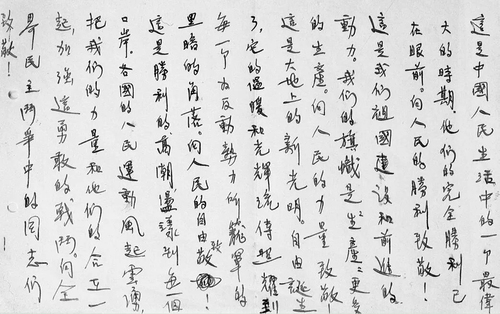 這是中國人民生活中的一个最偉
大的時期。他们的完全勝利已
在眼前。向人民的勝利致敬！
這是我们祖國建設和前進的
動力。我们的旗幟是生產：更多
的生產。向人民的力量致敬！
這是大地上的新光明。自由誕生
了，它的溫暖和光輝流傳照耀到
每一个为反動勢力所籠罩的
黑暗的角落。向人民的自由致敬！
這是勝利的高潮盪漾到每一個
口岸，各國的人民運動風起雲湧，
把我们的力量和他们的合在一
起，加強這勇敢的戰鬥。向全
界民主鬥爭中的同志们
致敬！